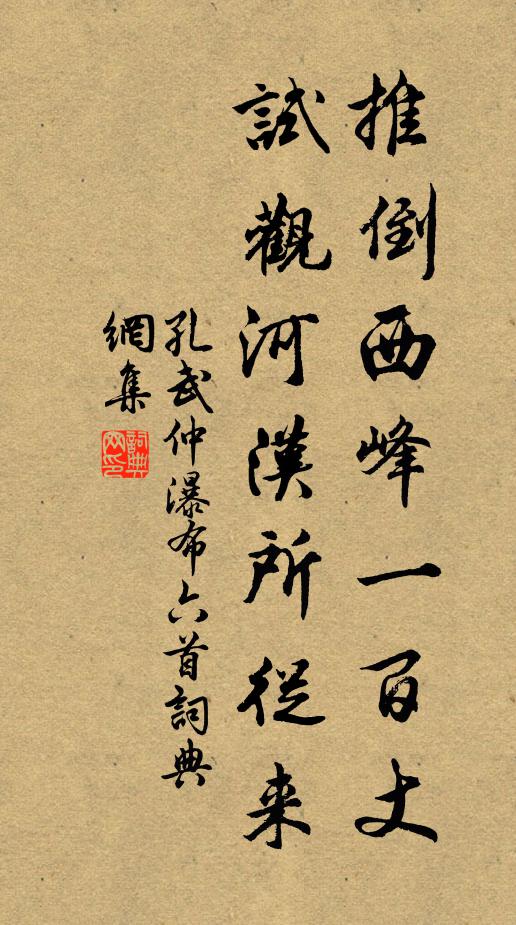 推倒西峰一百丈
試觀河漢所從来
孔武仲瀑布六首詞典
網集
詞典
网印